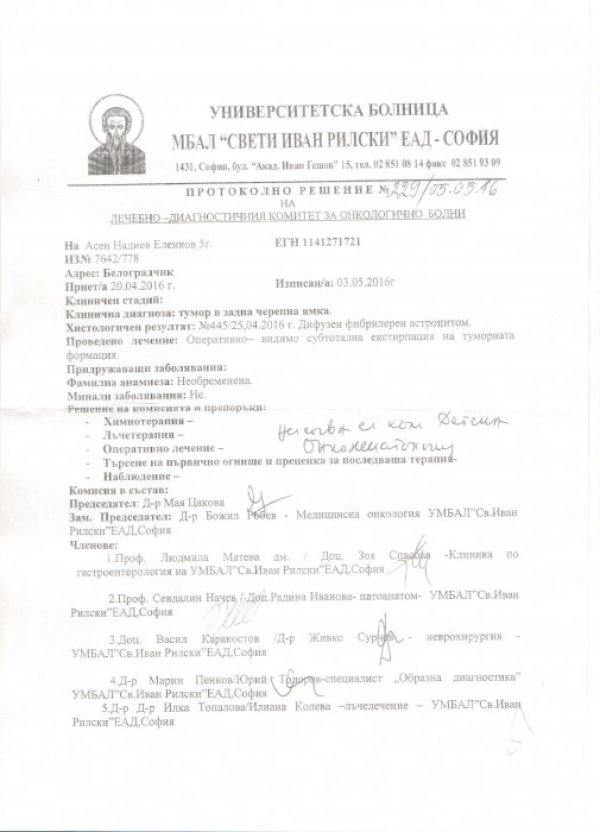 УНИВЕРСИТЕТСКА БОЛНИЦА
МБАЛ "СВЕТИ ИВАН РИЛСКИ" ЕАД - СОФИЯ
1431, София, бул. "Акад. Иван Гешов" 15, тел. 02 851 08 14 факс 02 851 93 09
ПРОТОКОЛНО РЕШЕНИЕ № 229/05.05.16
НА
ЛЕЧЕБНО –ДИАГНОСТИЧНИЯ КОМИТЕТ ЗА ОНКОЛОГИЧНО БОЛНИ
На Асен Надиев Еленков 5г. ЕГН 1141271721
ИЗ.№ 7642/778
Адрес: Белоградчик
Приет/а 20.04.2016 г. Изписан/а: 03.05.2016г
Клиничен стадий:
Клинична диагноза: тумор в задна черепна ямка.
Хистологичен резултат: №445/25,04.2016 г. Дифузен фибрилерен астроцитом.
Проведено лечение: Оперативно– видимо субтотална екстирпация на туморната
формация.
Придружаващи заболявания:
Фамилна анамнеза: Необременена.
Минали заболявания: Не.
Решение на комисията и препоръки:
- Химиотерапия –
- Лъчетерапия –
- Оперативно лечение –
- Търсене на първично огнище и преценка за последваща терапия-
- Наблюдение –
Насочва се към Детска
Онкохематология
Комисия в състав:
Председател: Д-р Мая Цакова
Зам. Председател: Д-р Божил Робев - Медицинска онкология УМБАЛ"Св.Иван
Рилски"ЕАД,София
Членове:
1.Проф. Людмила Матева дм. / Доц. Зоя Спасова -Клиника по
гастроентерология на УМБАЛ"Св.Иван Рилски"ЕАД,София
2.Проф. Севдалин Начев / Доц.Радина Иванова- патоанатом- УМБАЛ"Св.Иван
Рилски"ЕАД,София
3.Доц. Васил Каракостов /Д-р Живко Сурчев - неврохирургия -
УМБАЛ"Св.Иван Рилски"ЕАД,София
4.Д-р Марин Пенков/Юрий Тодоров-специалист „Образна диагностика"
УМБАЛ"Св.Иван Рилски"ЕАД,София
5.Д-р Д-р Илка Топалова/Илиана Колева –лъчелечение – УМБАЛ"Св.Иван
Рилски"ЕАД,София